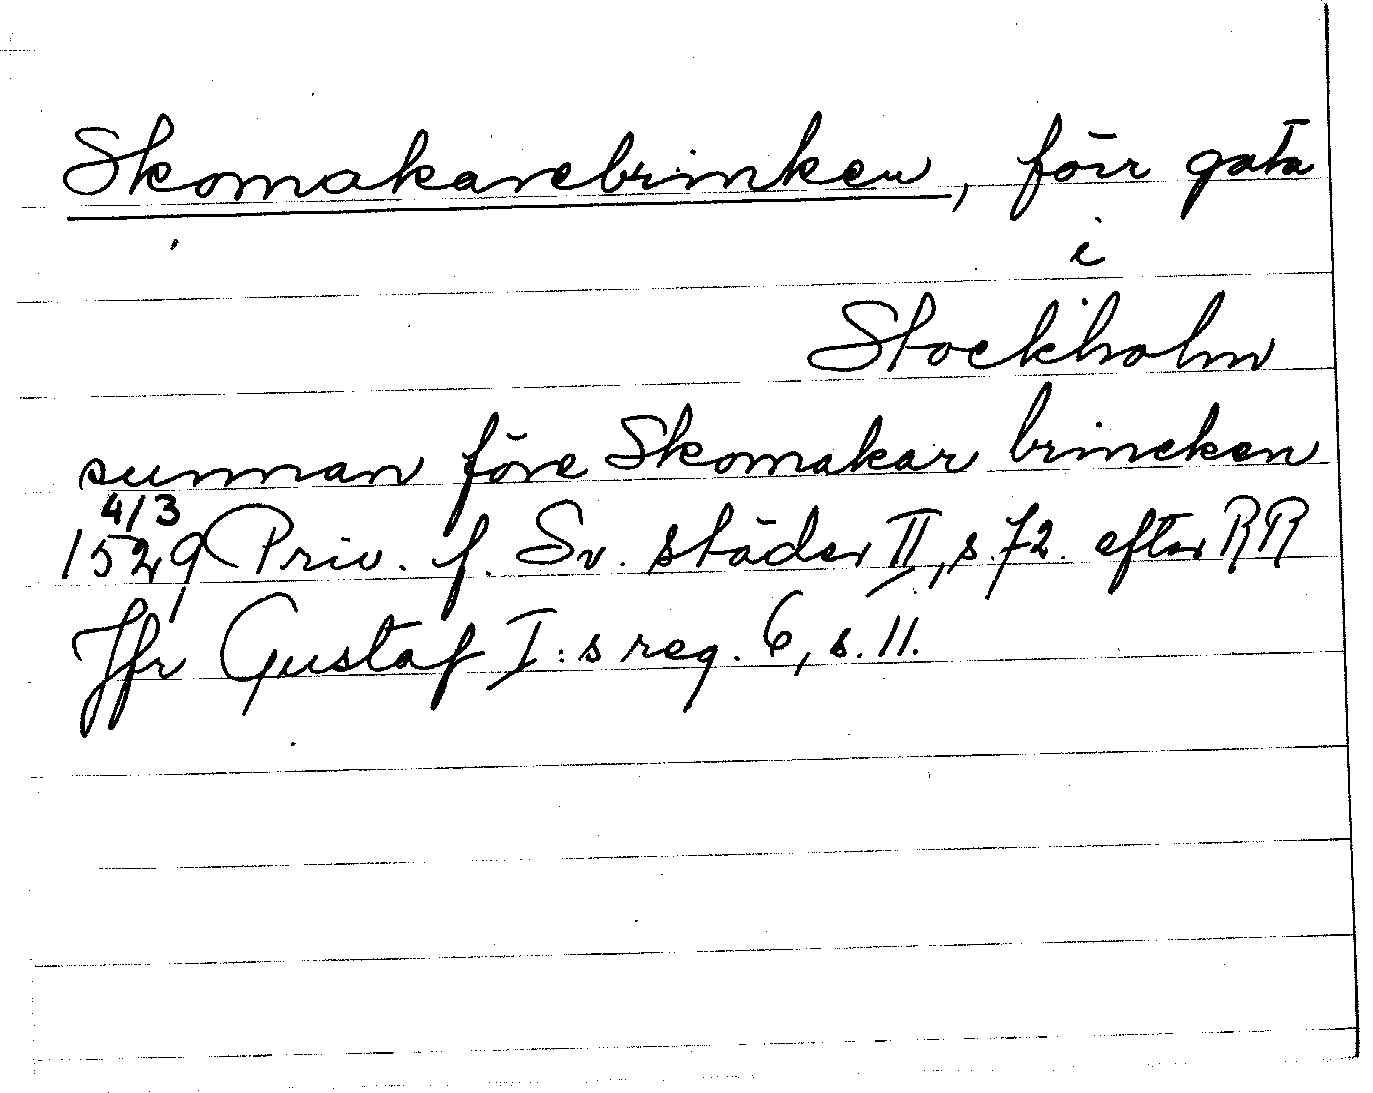 Skomakarebrinken, förr gata
i
Stockholm
sunnan före Skomakar brincken
4/3
1529 Priv. f. Sv. städer II, s. 72. efter RR
Jfr Gustaf I:s reg. 6, s. 11.